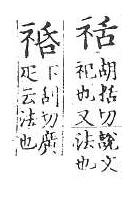 胡括切說文
祀也又法也
下刮切廣
疋云法也